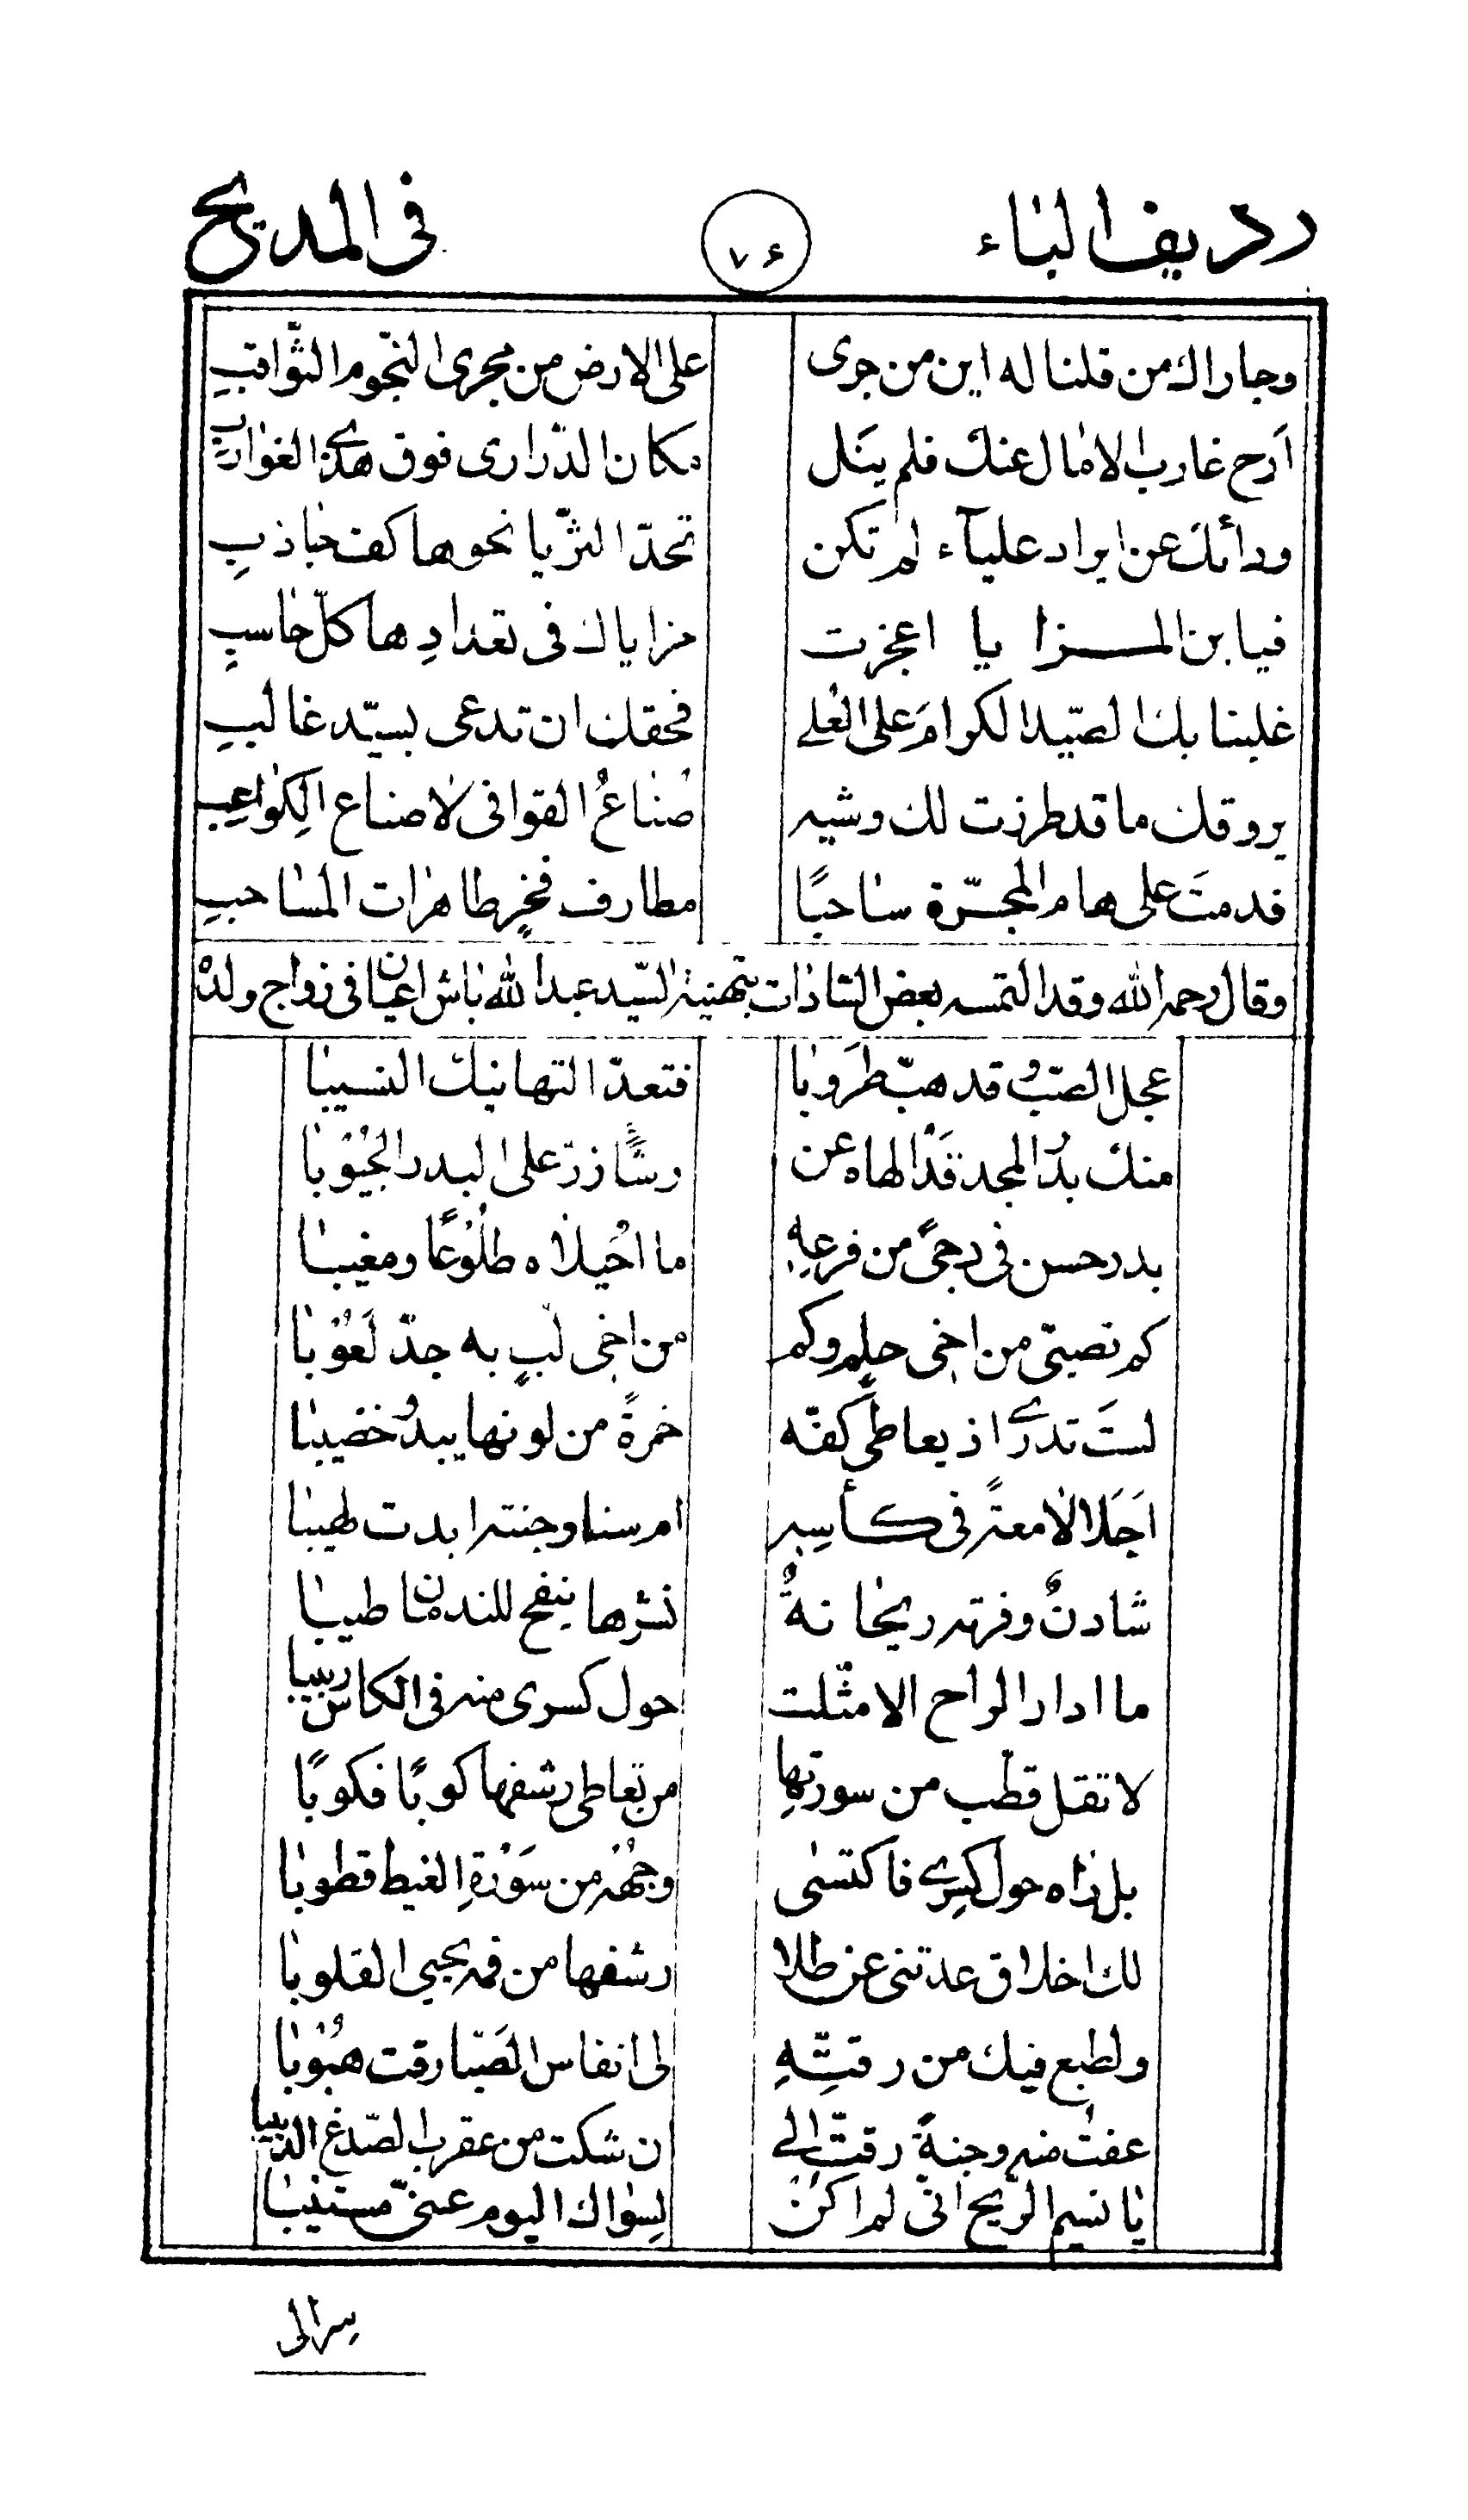 ردريف الباء ٧۶ في المديح
وجاراك من قلنا له اين من جرى على الارض من مجرى النّجوم الثّواقبِ
اَرح غارب الامال عنك فلم ينَل مكان الدّرارى فوق هذى الغوارب
ورائك عن ايراد عليآء لم تكن تمدّ الثريّا نحوها كف جاذبِ
فيا بن المزايا اعجزت مزاياك فى تعدادِها كلّ حاسبِ
غلبنا بك الصّيد الكرامَ على العلى فحقك ان تدعى بسيّد غالبِ
يروقك ما قد طرزت لك وشيه صُناعُ القوافى لا صناع الكواعبِ
فدمتَ على هام المجرّة ساحبًا مطارف فخرٍ طاهرات المساحبِ
وقال رحمه الله وقد التمسه بعض السّادات بتهنية السّيد عبد الله باش اعيان فى زواج ولده
عجل الصّب وقد هبّ طروبا فتعدّ التهانيك النسيبا
منك بدُ المجد قد الهاه عن رشًأ زرّ على البدر الجيُوبا
بدر حسن فى دجىً من فرعهِ ما احُيلاه طلُوعًا ومغيبا
كم تصبّى من اخى حلمٍ وكم من اخى لبٍ به جدّ لَعُوبا
لستَ تدرى اذ يعاطى كفّه خمرةً من لونها يبدُ خضيبا
اَجَلا لامعةً فى كأسه ام سنا وجنته ابدت لهيبا
شادنٌ وفرته ريحانةٌ نشرها ينفح للندمان طيبا
ما ادار الراح الا مثّلت حول كسرى منه فى الكاس ربيبا
لا تقل قطّب من سورتها من تعاطى رشفها كوبًا فكوبًا
بل راه حول كسرى فاكتسى وجهُه من سَوْرةِ الغيط قطوبا
لك اخلاق عدتنى عن طلا رشفها من فمه يحيى القلوبا
ولطبع فيك من رقتّهِ لى انفاس الصَبّا رقت هبُوبا
عفت منه وجنةً رقت الى ان شكت من عقرب الصّدغ الدّبيبا
يا نسيم الرّيح انّى لم اكن لِسواك اليوم عنّى مستنيبا